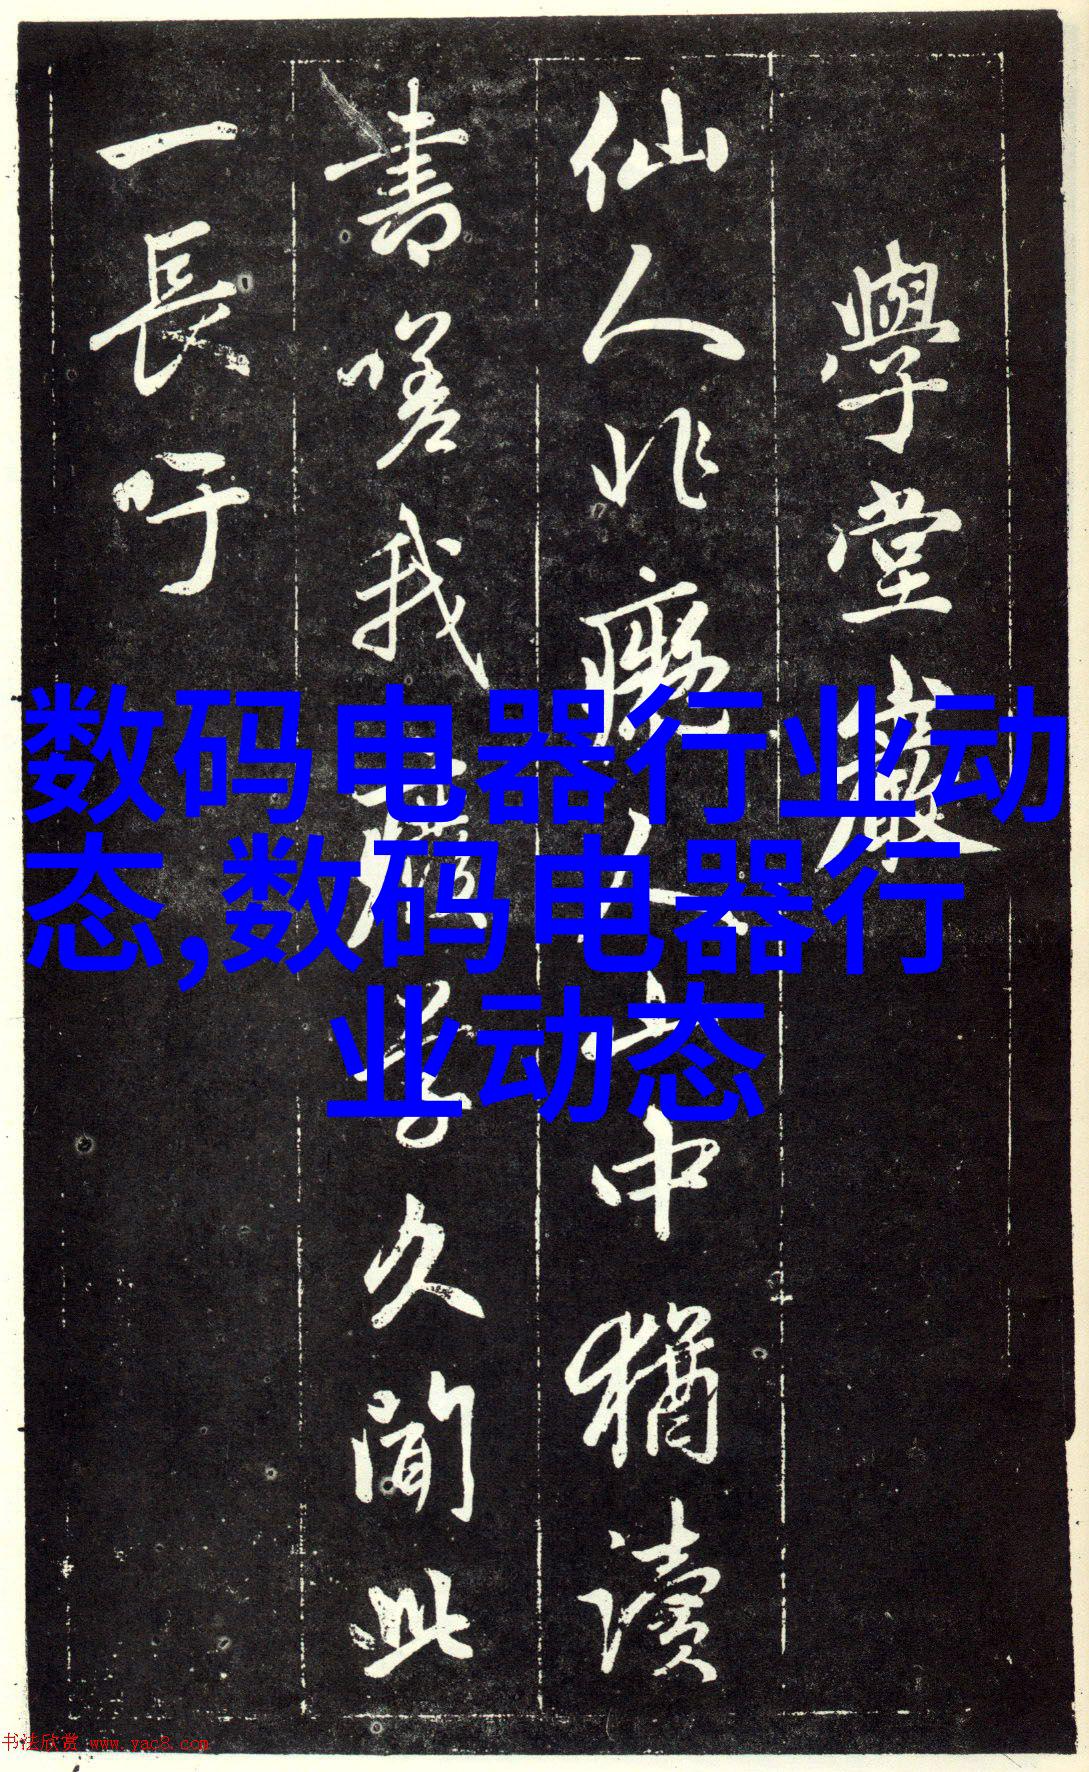 學堂巖
仙人非癡人山中猶讀
書嗟我廢學久聞此
一長吁
数码电器行业动
态,数码电器行
业动态
书法欣赏 www.yac8.com